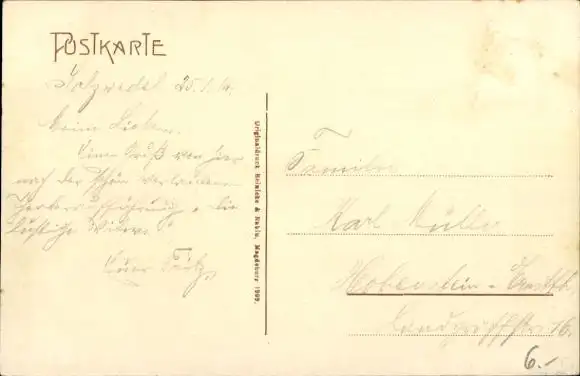 POSTKARTE
Salzwedel 25.
Meine Lieben,
Einen Gruß von hier
nach der schön verlaufenen
lustige Witwe.
Euer Fritz
Originaldruck Reinicke & Rubin, Magdeburg 1909.
Familie
Karl Müller
Hohenstein-Ernstth.
16.
6.-